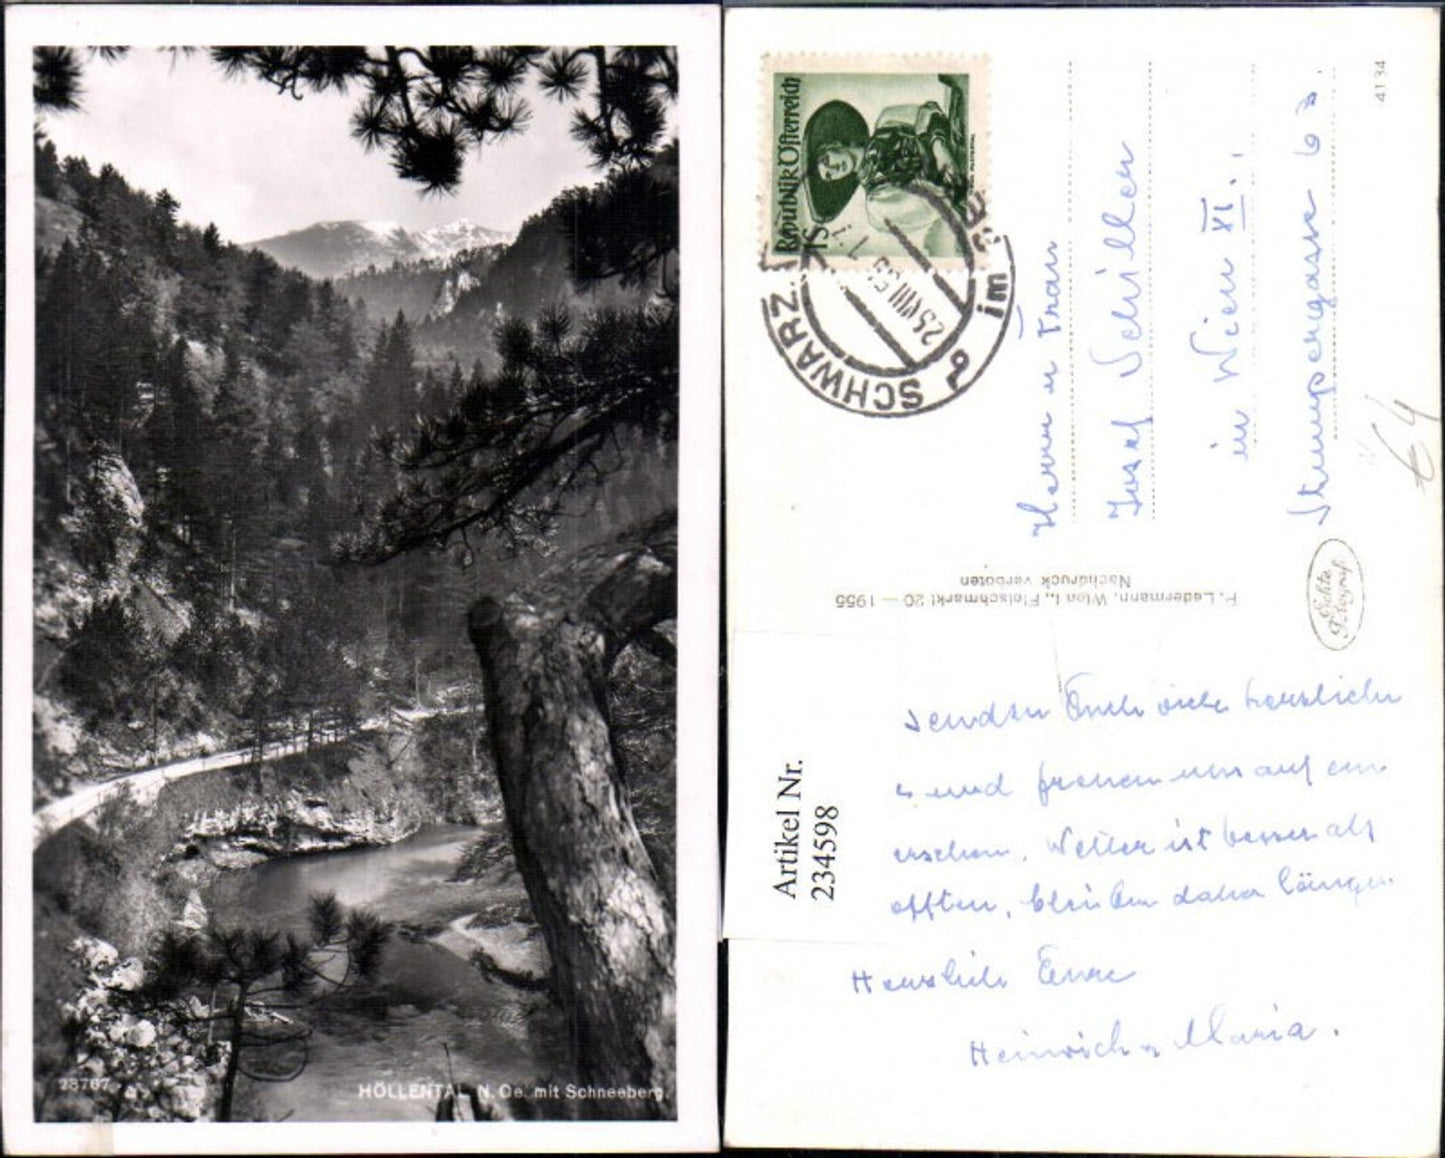 28767
HÖLLENTAL N. Oe. mit Schneeberg.
Republik Österreich
1S
SCHWARZ
im
23.VIII.55
4134
Herrn u Frau
Josef Schiller
in Wien XI.,
P. Ledermann, Wien I., Fleischmarkt 20 — 1955
Nachdruck verboten
Echte
€4
Artikel Nr.
234598
senden Euch viele herzliche
und freuen uns auf ein
Wetter ist besser als
bleiben daher länger.
Herzlich Eure
Heinrich u Maria.